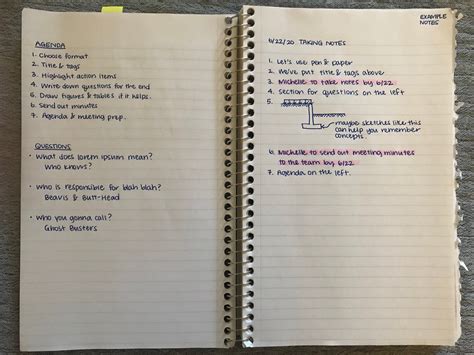 AGENDA
1. Choose format
2. Title & tags
3. Highlight action items
4. Write down questions for the end
5. Draw figures & tables if it helps.
6. Send out minutes
7. Agenda & meeting prep.
QUESTIONS
• What does lorem ipsum mean?
Who knows?
• Who is responsible for blah blah?
Beavis & Butt-Head
• Who you gonna call?
Ghost Busters
EXAMPLE
NOTES
6/22/20 TAKING NOTES
1. Let's use pen & paper
2. We've put title & tags above
3. Michelle to take notes by 6/22.
4. Section for questions on the left
5.
maybe sketches like this
can help you remember
concepts.
6. Michelle to send out meeting minutes
to the team by 6/22
7. Agenda on the left.